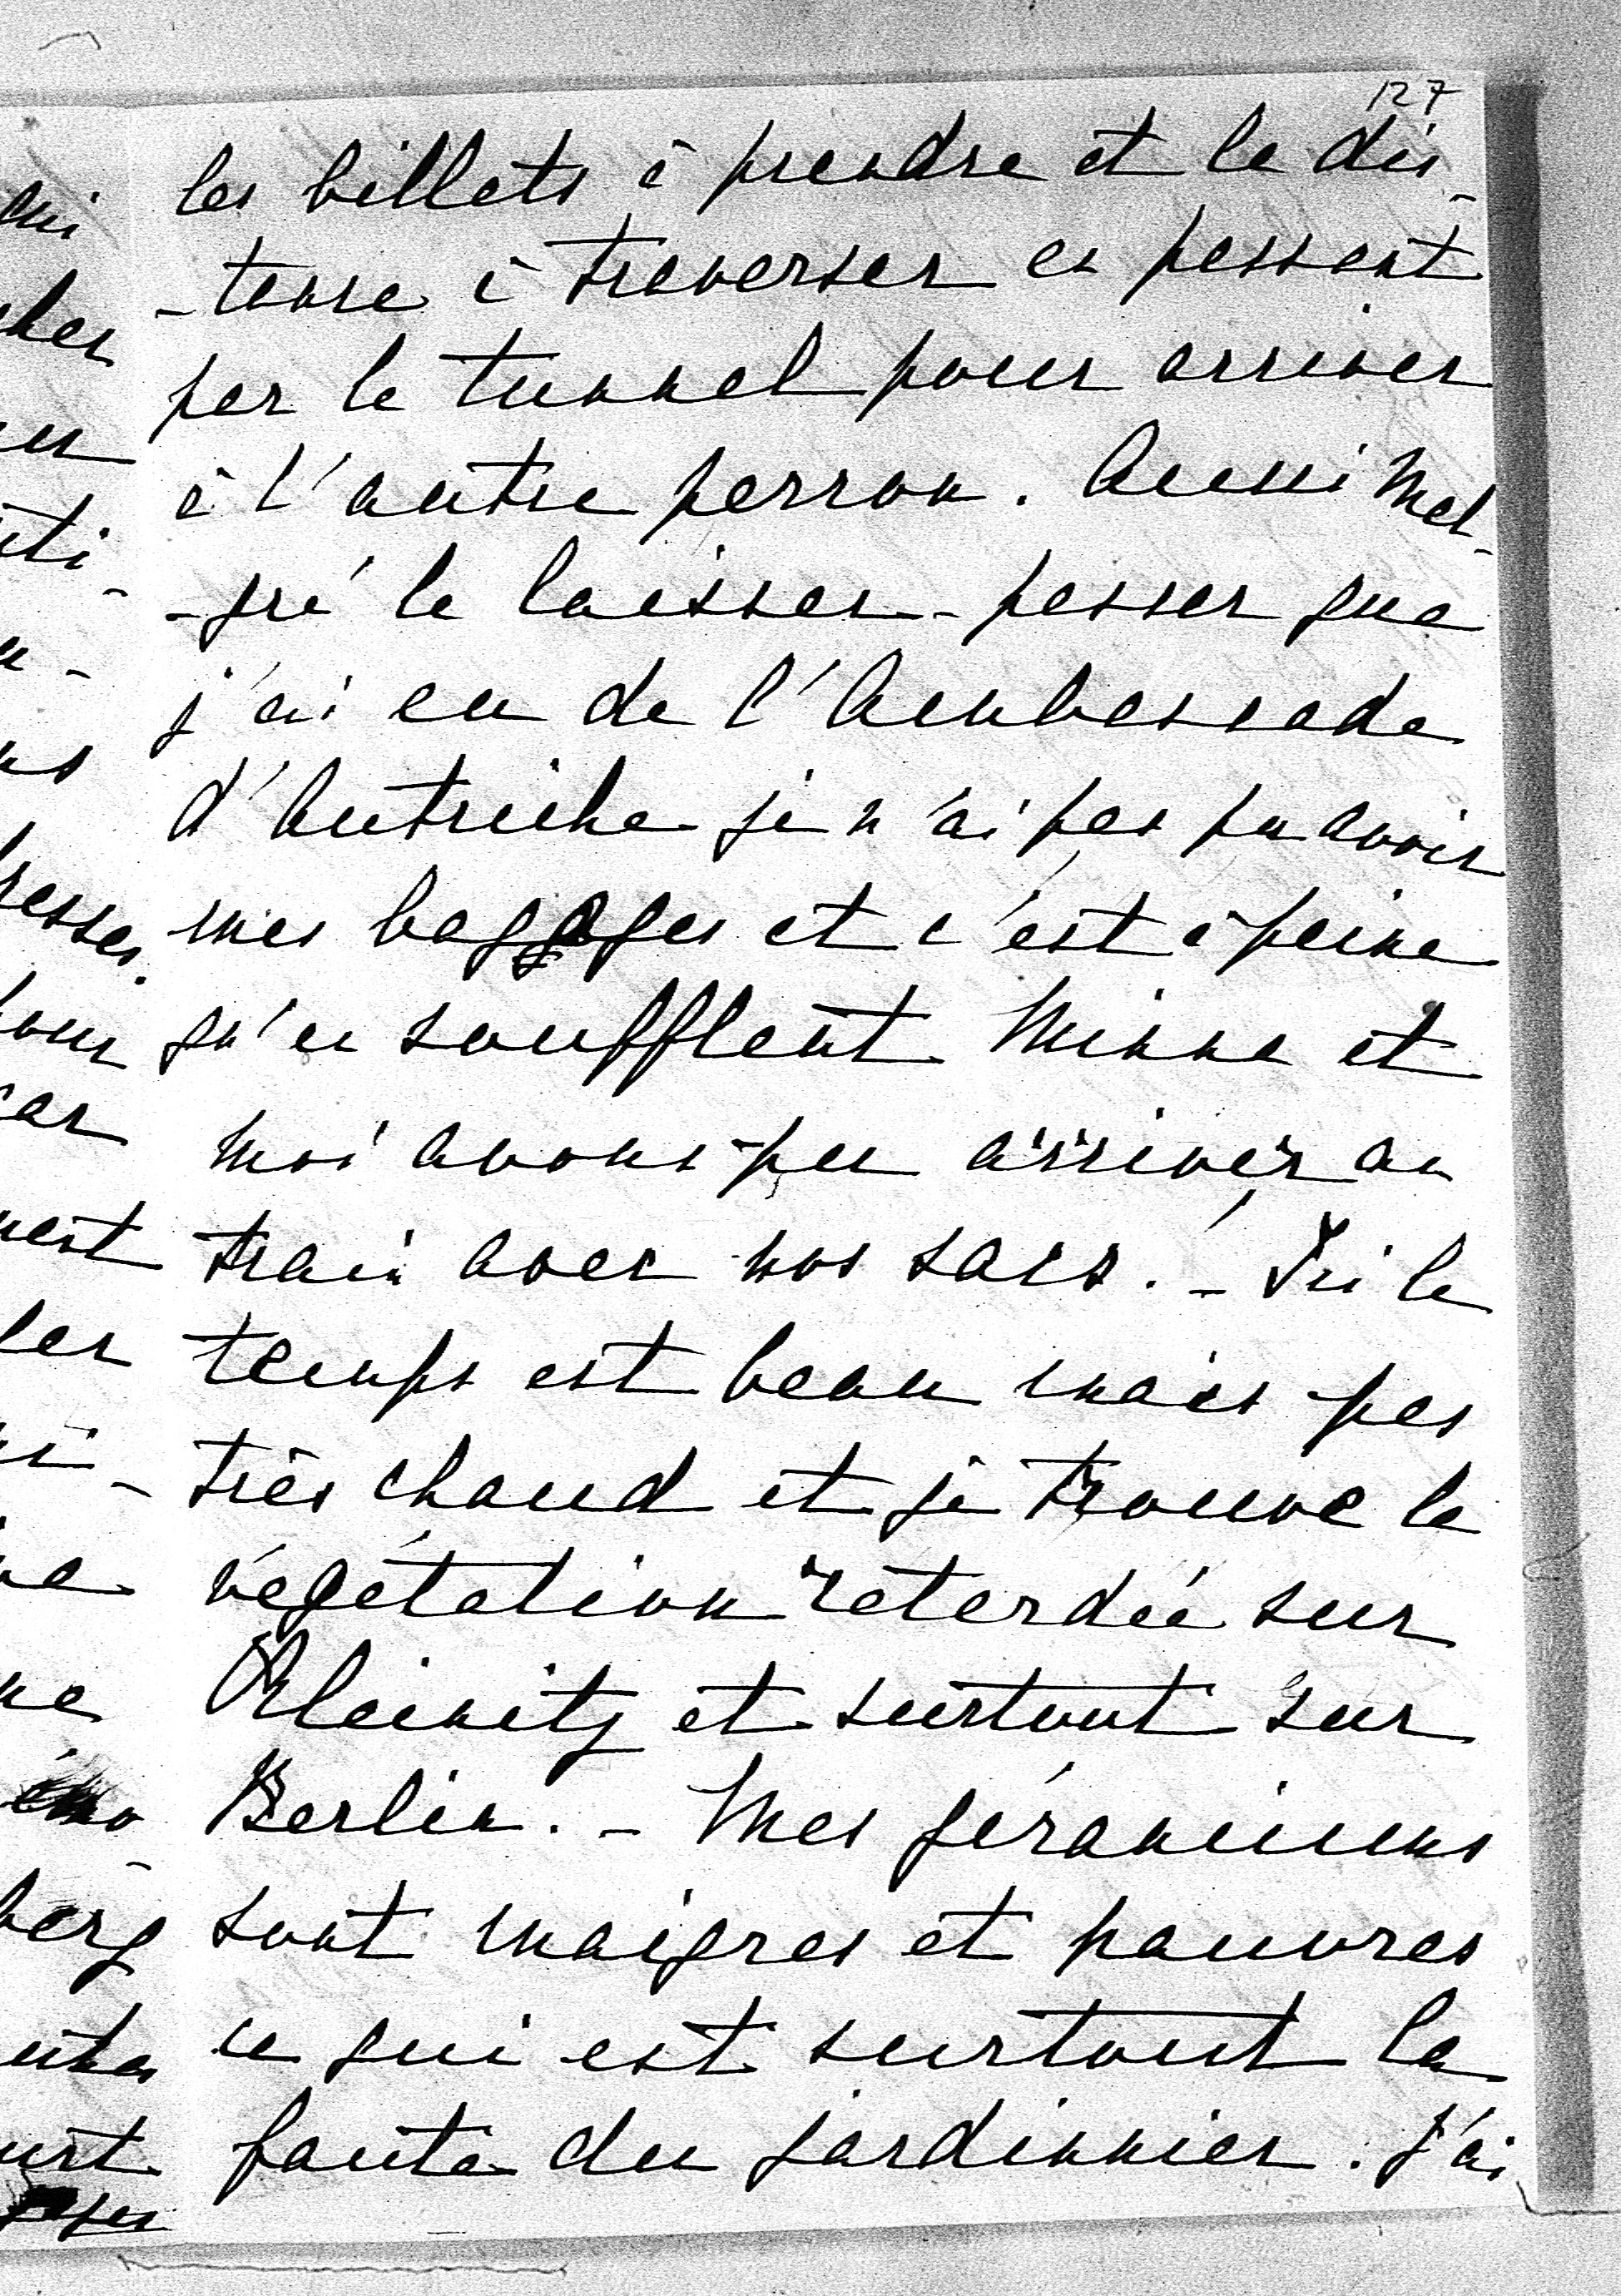 127
les billets à prendre et la dis-
-tance à traverser en passant
par le tunnel pour arriver
à l'autre perron. Aussi mal-
-gré le laisser-passer que
j'ai eu de l'Ambassade
d'Autriche je n'ai pas pu avoir
mes baggages et c'est à peine
qu'en soufflant Minna et
moi avons pu arriver au
train avec nos sacs. - Ici le
temps est beau mais pas
très chaud et je trouve la
végétation retardée sur
Kleinitz et surtout sur
Berlin. - Mes géraniums
sont maigres et pauvres
ce qui est surtout la
faute du jardinnier. J'ai